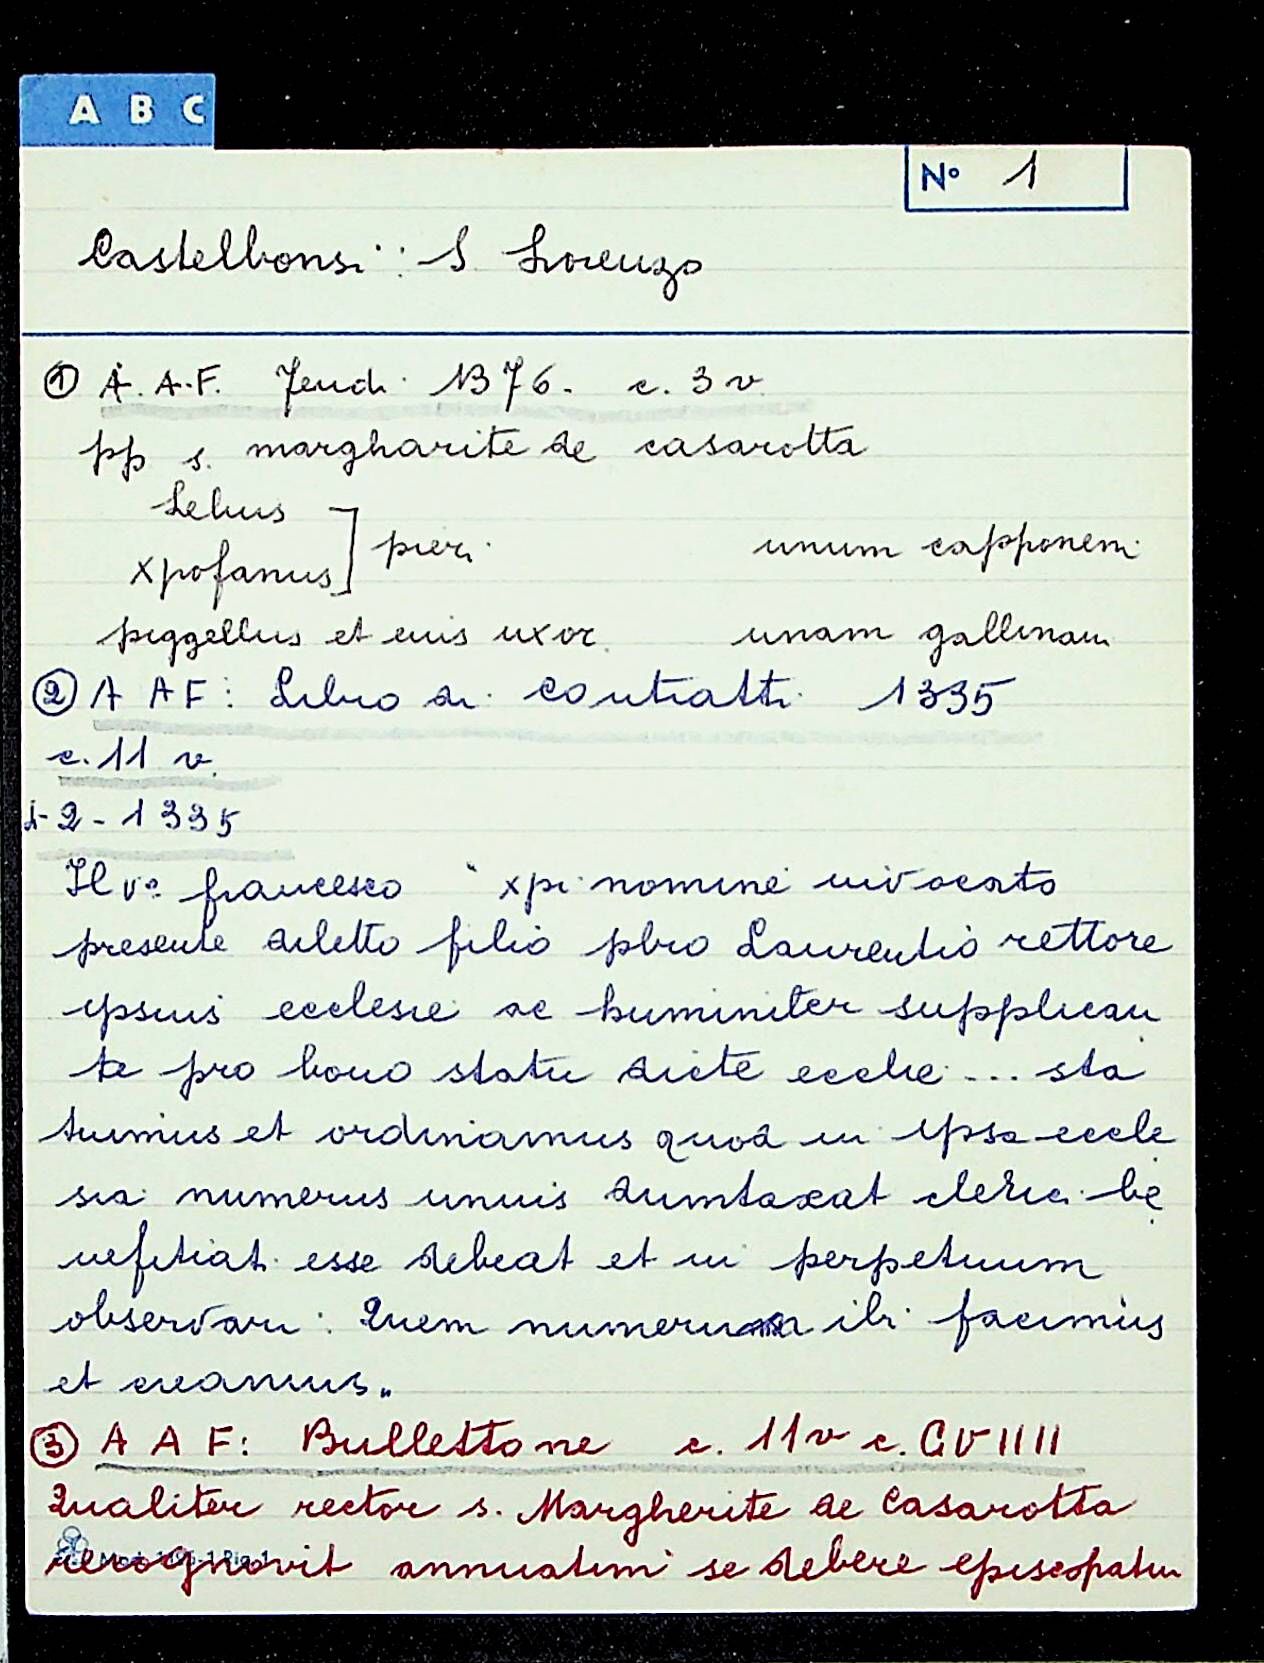 A B C
N° 1
Castelbonsi: S. Lorenzo
① A. A.F. Feudi 1376. c. 3 v.
pp s. margharite de casarotta
Lebus
xpofanus ] pieri unum capponem
piggellus et eius uxor unam gallinam
② A A F: Libro di contratti 1335
c. 11 v.
1-2-1335
Il v° francesco " xpi nomine invocato
presente diletto filio pbro Laurentio rettore
ipsius ecclesie ac huminiter supplican
te pro bono statu dicte ecclie ... sta
tuimus et ordinamus quod in ipsa eccle
sia numerus unius dumtaxat clerici be
nefitiati esse debeat et in perpetuum
observari: Quem numerum ibi facimus
et creamus"
③ A A F: Bullettone c. 11 v c. CVIIII
Qualiter rector s. Margherite de Casarotta
recognovit annuatim se debere episcopatui